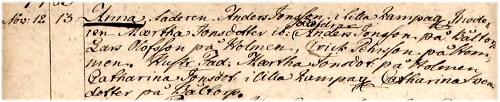 Nov. 12 13 Anna, Faderen Anders Jonsson i Lilla Rampag, Mode-
ren Märtha Jonsdotter ib: Anders Jonsson på Bälto
Lars Olofsson på Holmen, Erick Johnson på Hin-
men, Hustr. Fad. Märtha Jonsdot. på Holmen,
Catharina Jonsdot. i Lilla Rampag Catharina Sven
dotter på Bältorp.